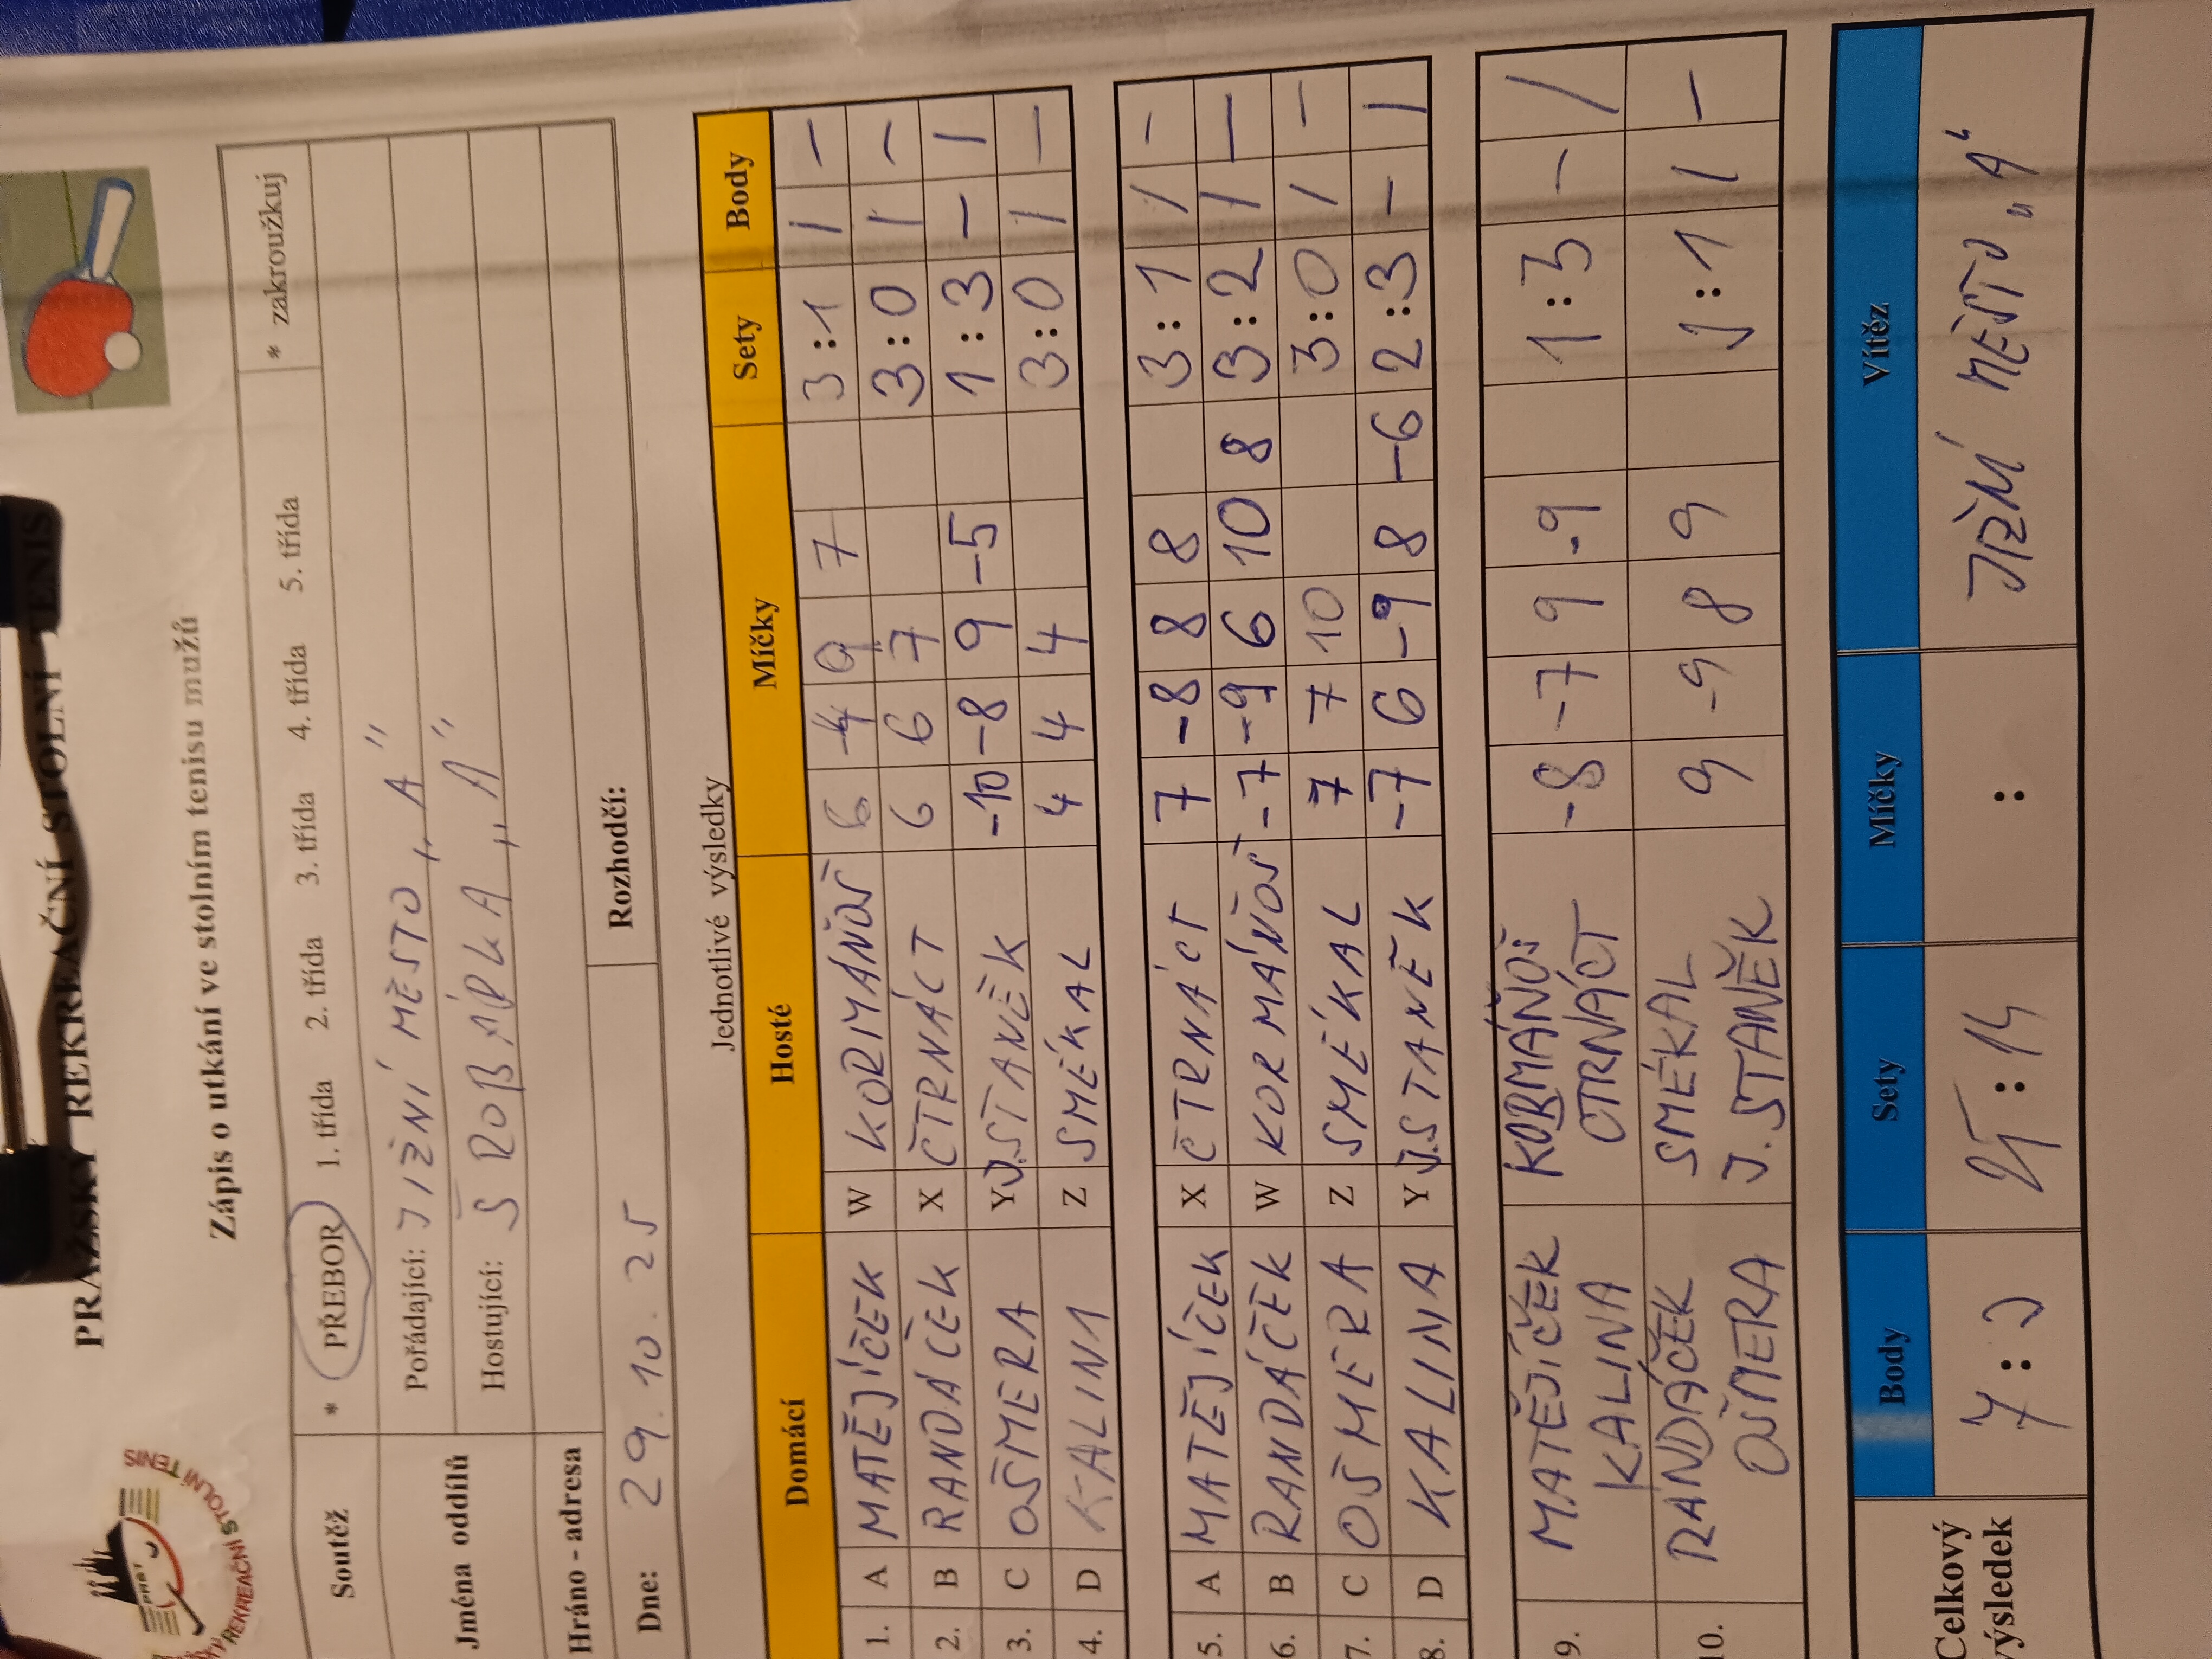 PRAŽSKÝ REKREAČNÍ STOLNÍ TENIS
Zápis o utkání ve stolním tenisu mužů
Soutěž * PŘEBOR 1. třída 2. třída 3. třída 4. třída 5. třída * zakroužkuj
Jména oddílů Pořádající: JIŽNÍ MĚSTO „A"
Hostující: ŠROBÁRKA „A"
Hráno - adresa
Dne: 29.10.25 Rozhodčí:
Jednotlivé výsledky
Domácí Hosté Míčky Sety Body
1. A MATĚJÍČEK W KORMÁŇOŠ 6 -4 9 7 3:1 1 -
2. B RANDÁČEK X ČTRNÁCT 6 6 7 3:0 1 -
3. C OŠMERA Y J.STANĚK -10 -8 9 -5 1:3 - 1
4. D KALINA Z SMÉKAL 4 4 4 3:0 1 -
5. A MATĚJÍČEK X ČTRNÁCT 7 -8 8 8 3:1 1 -
6. B RANDÁČEK W KORMÁŇOŠ -7 -9 6 10 8 3:2 1 -
7. C OŠMERA Z SMÉKAL 7 7 10 3:0 1 -
8. D KALINA Y J.STANĚK -7 6 -9 8 -6 2:3 - 1
9. MATĚJÍČEK KORMÁŇOŠ -8 -7 9 -9 1:3 - 1
KALINA ČTRNÁCT
10. RANDÁČEK SMÉKAL 9 -9 8 9 3:1 1 -
OŠMERA J.STANĚK
Celkový výsledek Body Sety Míčky Vítěz
7:3 : 14 : JIŽNÍ MĚSTO „A"
PRST
REKREAČNÍ STOLNÍ TENIS